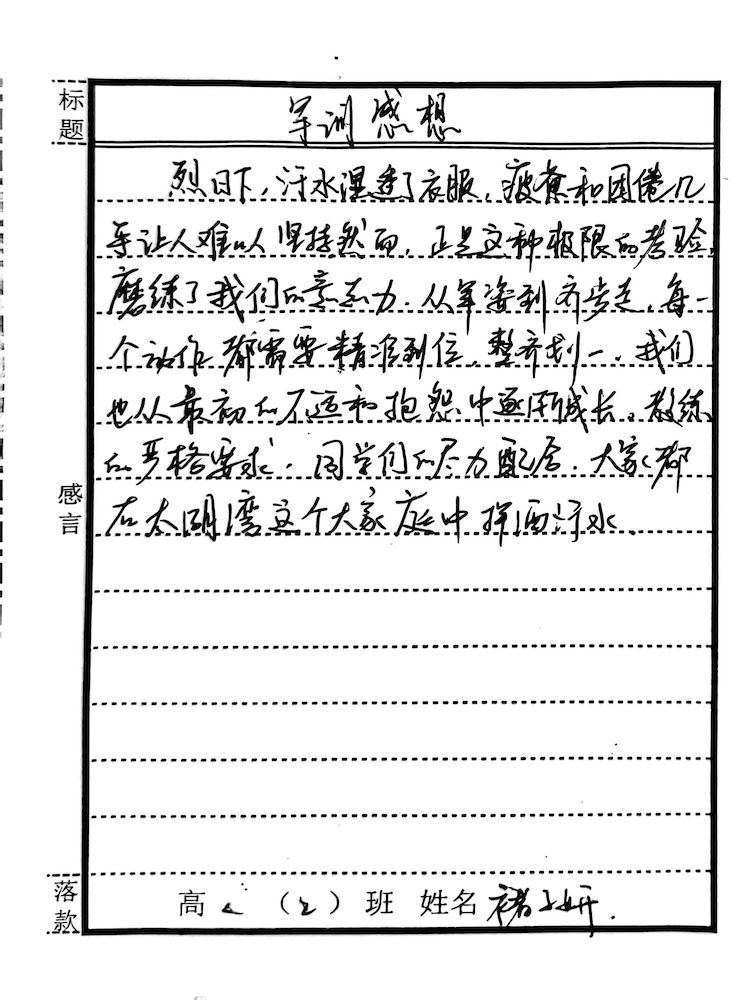 标题
军训感想
烈日下，汗水湿透了衣服，疲惫和困倦几
乎让人难以坚持然而，正是这种极限的考验，
磨练了我们的意志力。从军姿到齐步走，每一
个动作都需要精准到位，整齐划一。我们
也从最初的不适和抱怨中逐渐成长。教练
的严格要求，同学们的尽力配合，大家都
在太阴湾这个大家庭中挥洒汗水。
感言
落款
高 （2）班 姓名 褚子妍.